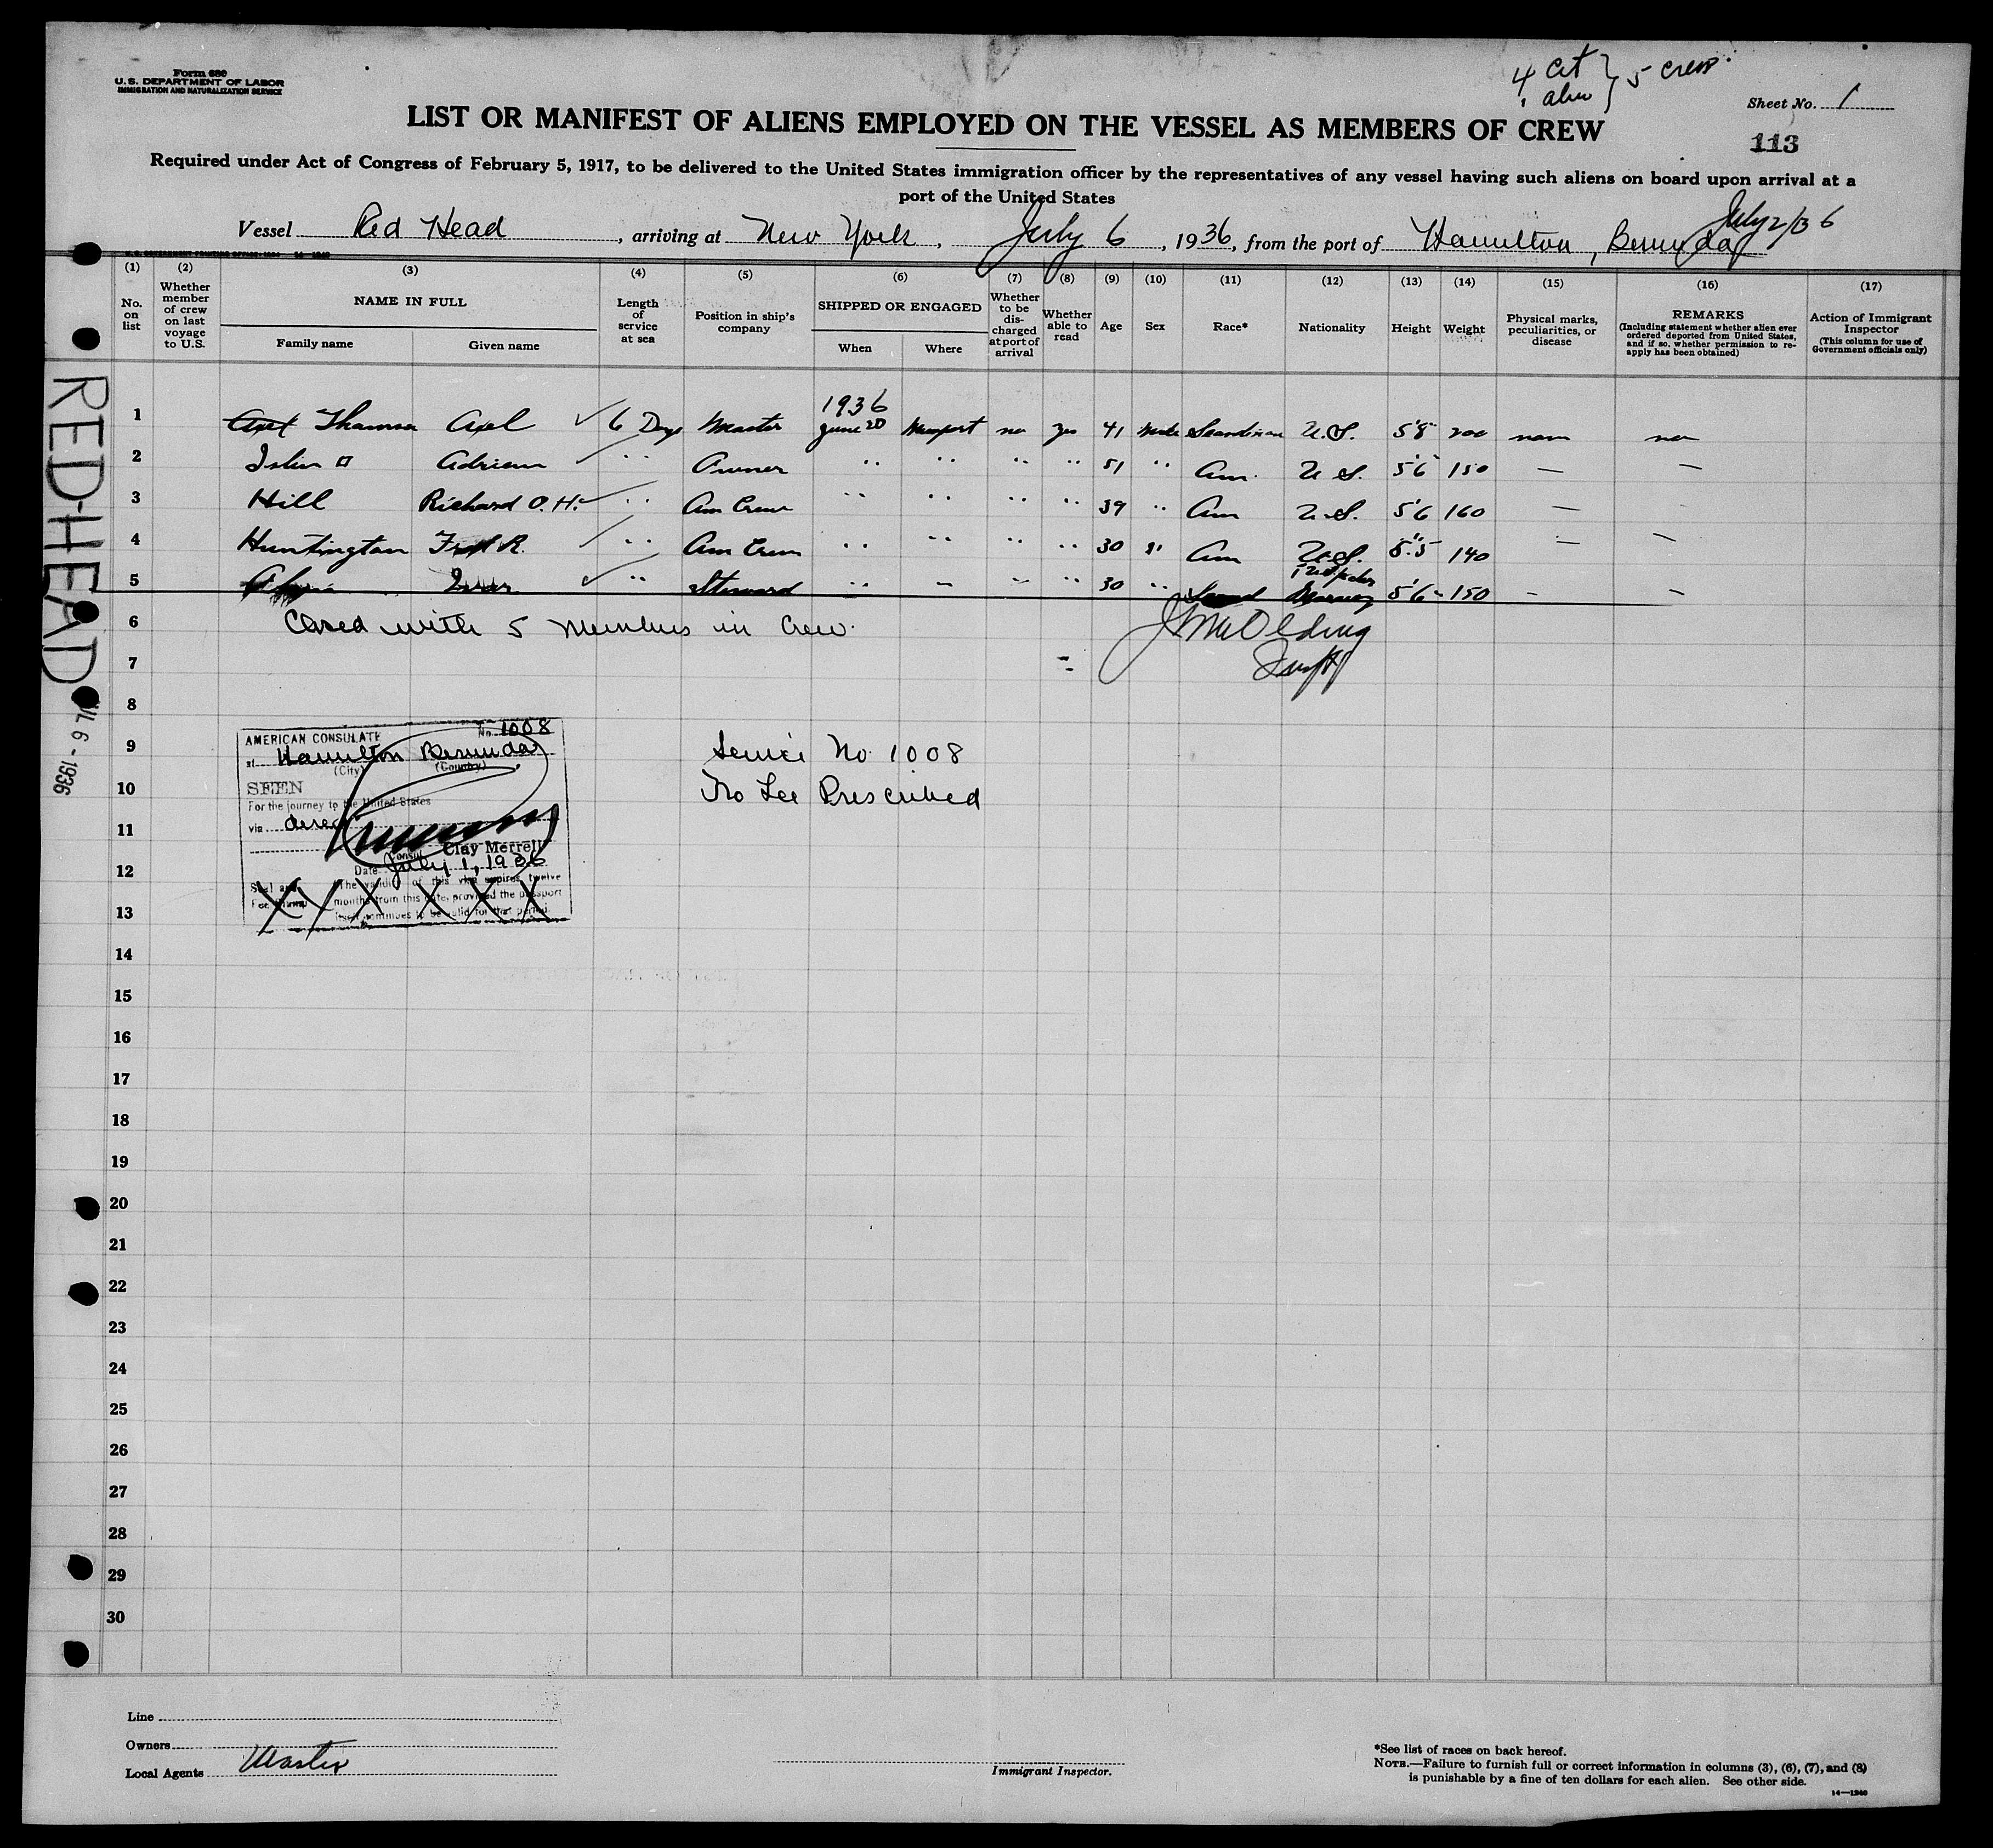 Form 680
U. S. DEPARTMENT OF LABOR
IMMIGRATION AND NATURALIZATION SERVICE
4 cit } 5 crew
1 alien
Sheet No. 1
LIST OR MANIFEST OF ALIENS EMPLOYED ON THE VESSEL AS MEMBERS OF CREW
113
Required under Act of Congress of February 5, 1917, to be delivered to the United States immigration officer by the representatives of any vessel having such aliens on board upon arrival at a
port of the United States
July 2/36
Vessel Red Head, arriving at New York, July 6, 1936, from the port of Hamilton, Bermuda
(1) (2) (3) (4) (5) (6) (7) (8) (9) (10) (11) (12) (13) (14) (15) (16) (17)
No. on list
Whether member of crew on last voyage to U.S.
NAME IN FULL
Family name
Given name
Length of service at sea
Position in ship's company
SHIPPED OR ENGAGED
When
Where
Whether to be discharged at port of arrival
Whether able to read
Age
Sex
Race*
Nationality
Height
Weight
Physical marks, peculiarities, or disease
REMARKS
(Including statement whether alien ever ordered deported from United States, and if so, whether permission to reapply has been obtained)
Action of Immigrant Inspector
(This column for use of Government officials only)
1936
1 Axel ✓ 6 Days Master June 20 Newport no yes 41 Male U.S. 5'8" 200
2 Adrian " Owner " " " " 51 " Am. U S. 5'6" 150 — —
3 Hill Richard O. H. ✓ " Am Crew " " " " 39 " Am U.S. 5'6 160 —
4 Huntington " Am Crew " " " " 30 " Am U.S. 5'5" 140 — —
5 ✓ " Steward " " " " 30 " Norway 5'6" 150 — —
6 Closed with 5 Members in Crew.
7
8
9
10
11
12
13
14
15
16
17
18
19
20
21
22
23
24
25
26
27
28
29
30
RED HEAD
JUL 6 - 1936
No. 1008
AMERICAN CONSULATE
at Hamilton Bermuda
(City) (Country)
SEEN
For the journey to the United States
via direct
Consul Clay Merrell
Date July 1, 1936
Seal and Fee Stamp
The validity of this visa expires twelve
months from this date, provided the passport
itself continues to be valid for that period
X X X X X X
Service No. 1008
No Fee Prescribed
Line
Owners
Local Agents Master
Immigrant Inspector.
*See list of races on back hereof.
NOTE.—Failure to furnish full or correct information in columns (3), (6), (7), and (8)
is punishable by a fine of ten dollars for each alien. See other side.
14—1240